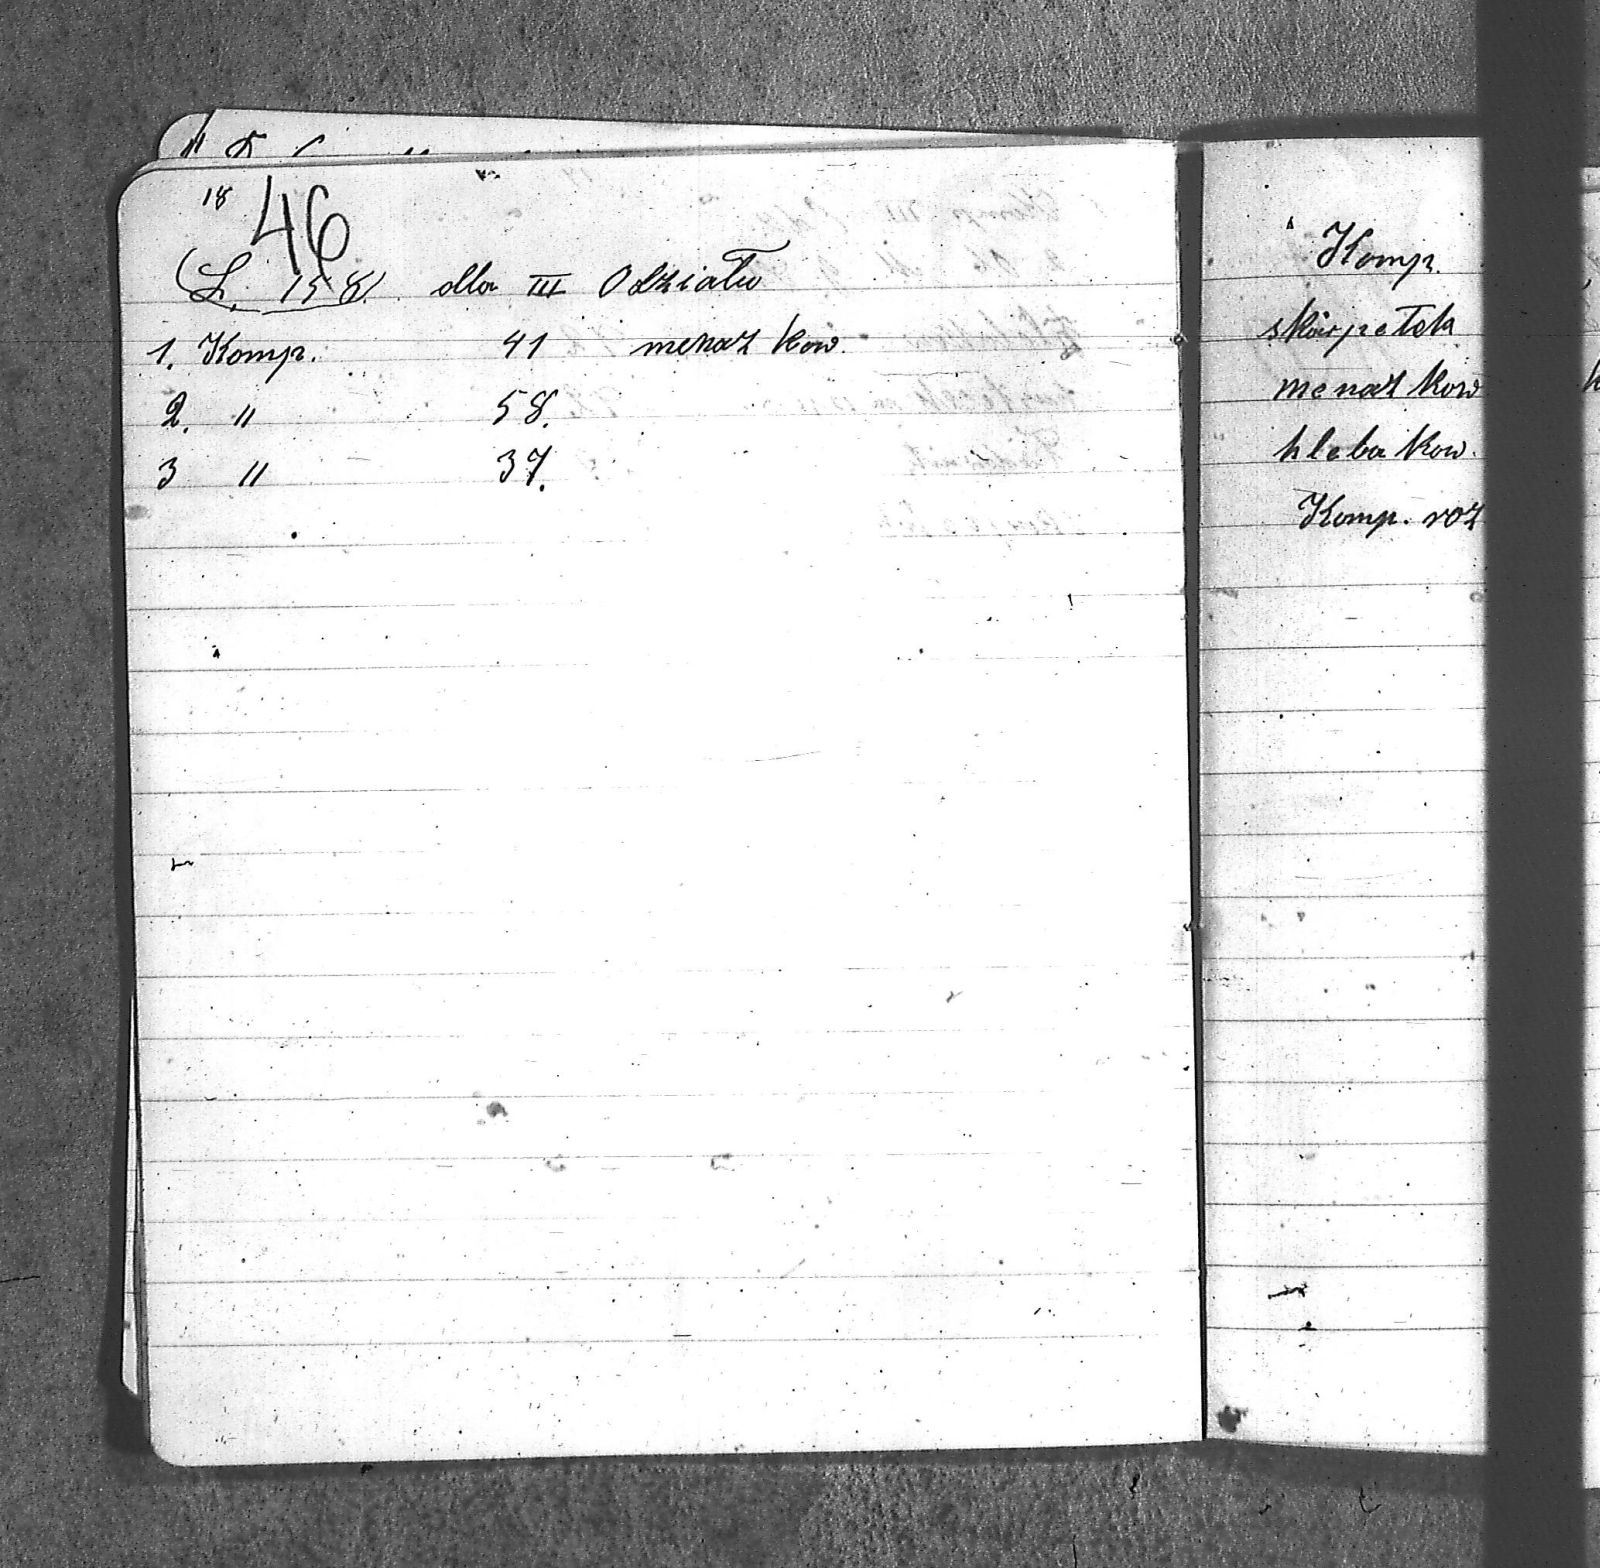 18
46
L. 158 dla III Odziału
1. Komp. 41 menaż kow.
2. " 58.
3 " 37.
Komp.
skarpetek
menaż kow
hleba kow.
Komp. roz